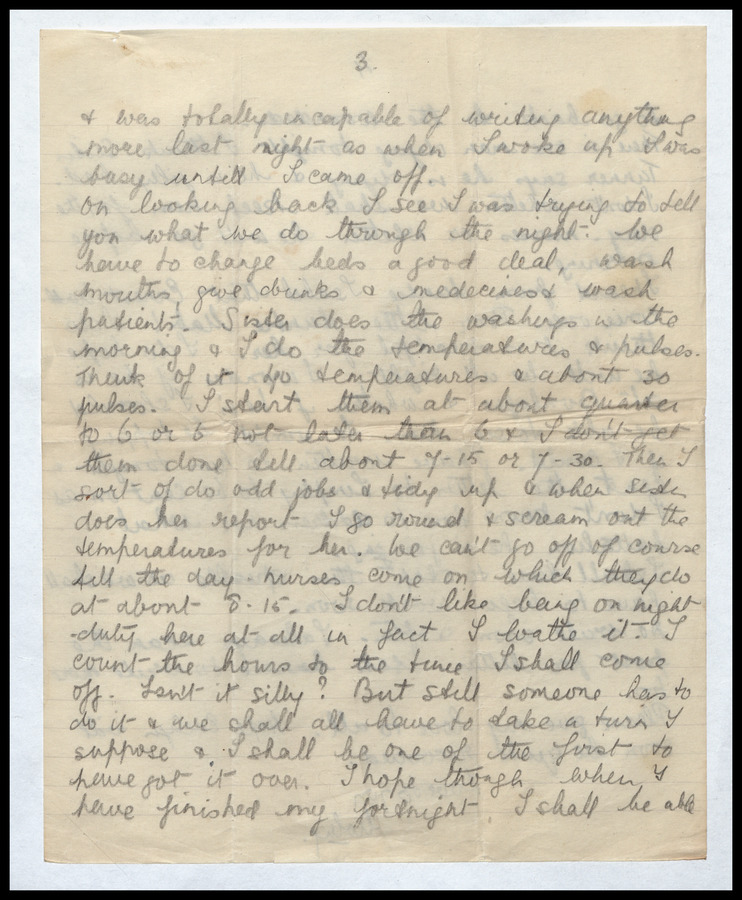 3.
& was totally incapable of writing anything
more last night as when I woke up I was
busy untill I came off.
On looking back I see I was trying to tell
you what we do through the night. We
have to change beds a good deal, wash
mouths, give drinks & medecines & wash
patients. Sister does the washings in the
morning & I do the temperatures & pulses.
Think of it 40 temperatures & about 30
pulses. I start them at about quarter
to 6 or 6 not later than 6 & I don't get
them done till about 7-15 or 7-30. Then I
sort of do odd jobs & tidy up & when Sister
does her report I go round & scream out the
temperatures for her. We can't go off of course
till the day-nurses come on which they do
at about 8-15. I don't like being on night
-duty here at all in fact I loathe it. I
count the hours to the time I shall come
off. Isn't it silly? But still someone has to
do it & we shall all have to take a turn I
suppose & I shall be one of the first to
have got it over. I hope though when I
have finished my fortnight I shall be able